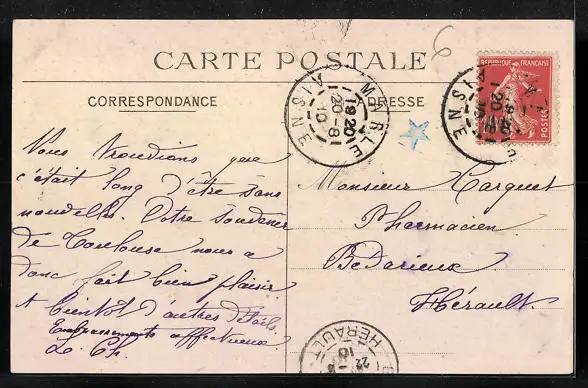 6
CARTE POSTALE
CORRESPONDANCE
ADRESSE
MARLE
19 20
20-8
10
AISNE
REPUBLIQUE FRANÇAISE
POSTES
Vous trouvions que
c'était long d'être sans
nouvelles. Votre souvenir
de Toulouse nous a
donc fait bien plaisir
A bientôt d'autres détails
Embrassements affectueux
Monsieur Carquet
Pharmacien
Bedarieux
Hérault
HERAULT
22
10